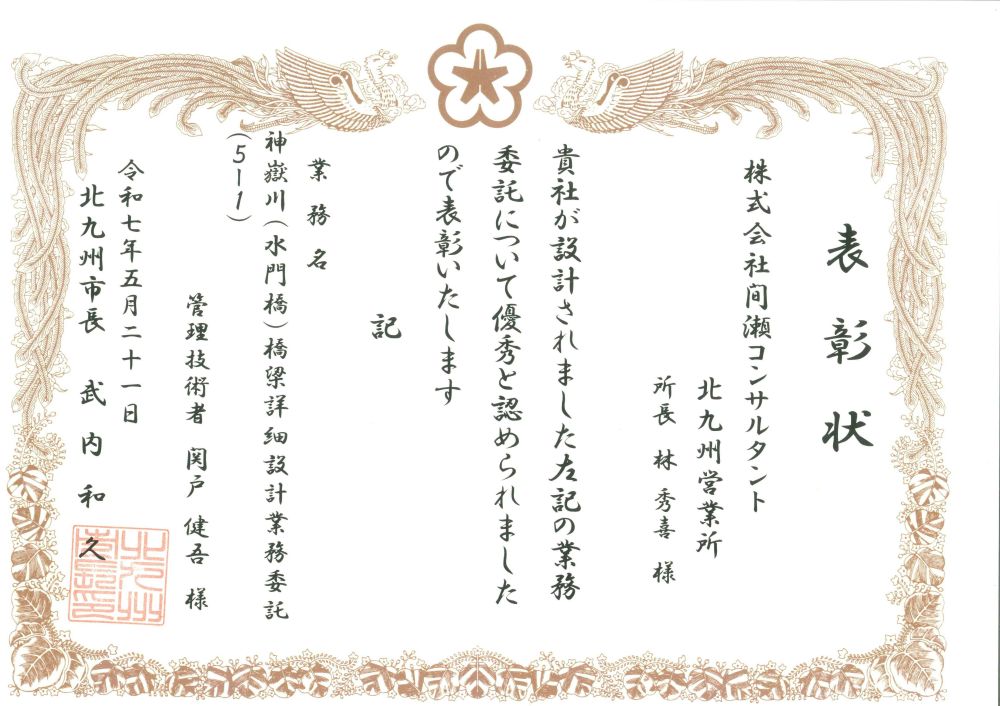 表彰状
株式会社間瀬コンサルタント
北九州営業所
所長 林 秀喜 様
貴社が設計されました左記の業務
委託について優秀と認められました
ので表彰いたします
記
業務名
神嶽川(水門橋)橋梁詳細設計業務委託
(5-1)
管理技術者 関戸 健吾 様
令和七年五月二十一日
北九州市長 武内和久